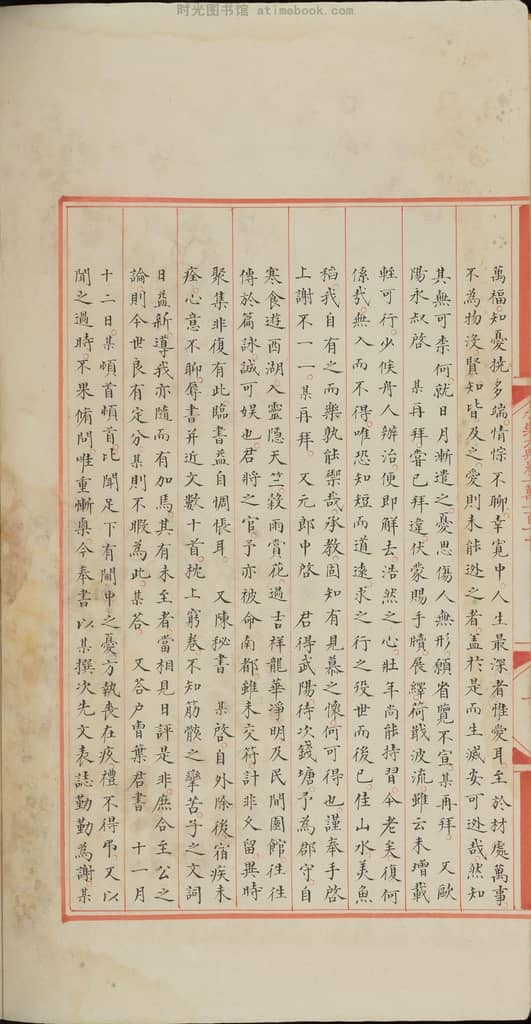 时光图书馆 atimebook.com
萬福知憂撓多端情悰不聊幸寛中人生最深者惟愛耳至於材處萬事
不為物沒賢知皆及之愛則未能逃之者盖於是而生滅安可逃哉然知
其無可柰何就日月漸遣之憂思傷人無形願省覽不宣某再拜　又歐
陽永叔啓　某再拜嘗已拜違伏蒙賜手牘展繹荷戢波流雖云未增載
輕可行少候舟人辦治便即解去浩然之心壯年尚能持習今老矣復何
係哉無入而不得唯恐知短而道遠求之行之殁世而後已佳山水美魚
稻我自有之而樂孰能禦哉承教固知有見慕之懷何可得也謹奉手啓
上謝不一一某再拜　又元郎中啓　君得武陽待次錢塘予為郡守自
寒食遊西湖入靈隱天竺穀雨賞花過吉祥龍華淨明及民間園館往往
傳於篇詠誠可娛也君將之官予亦被命南都雖未交符計非久留異時
聚集非復有此臨書益自惆悵耳　又陳秘書　某啓自外除後宿疾未
痊心意不聊辱書并近文數十首枕上窮卷不知筋骸之攣苦子之文詞
日益新導我亦隨而有加焉其有未至者當相見日評是非庶合至公之
論則今世良有定分某則不暇為此某荅　又荅户曹葉君書　十一月
十二日某頓首頓首比聞足下有閫中之憂方執喪在疚禮不得弔又以
聞之過時不果脩問唯重慚槩今奉書以某撰次先文表誌勤勤為謝某